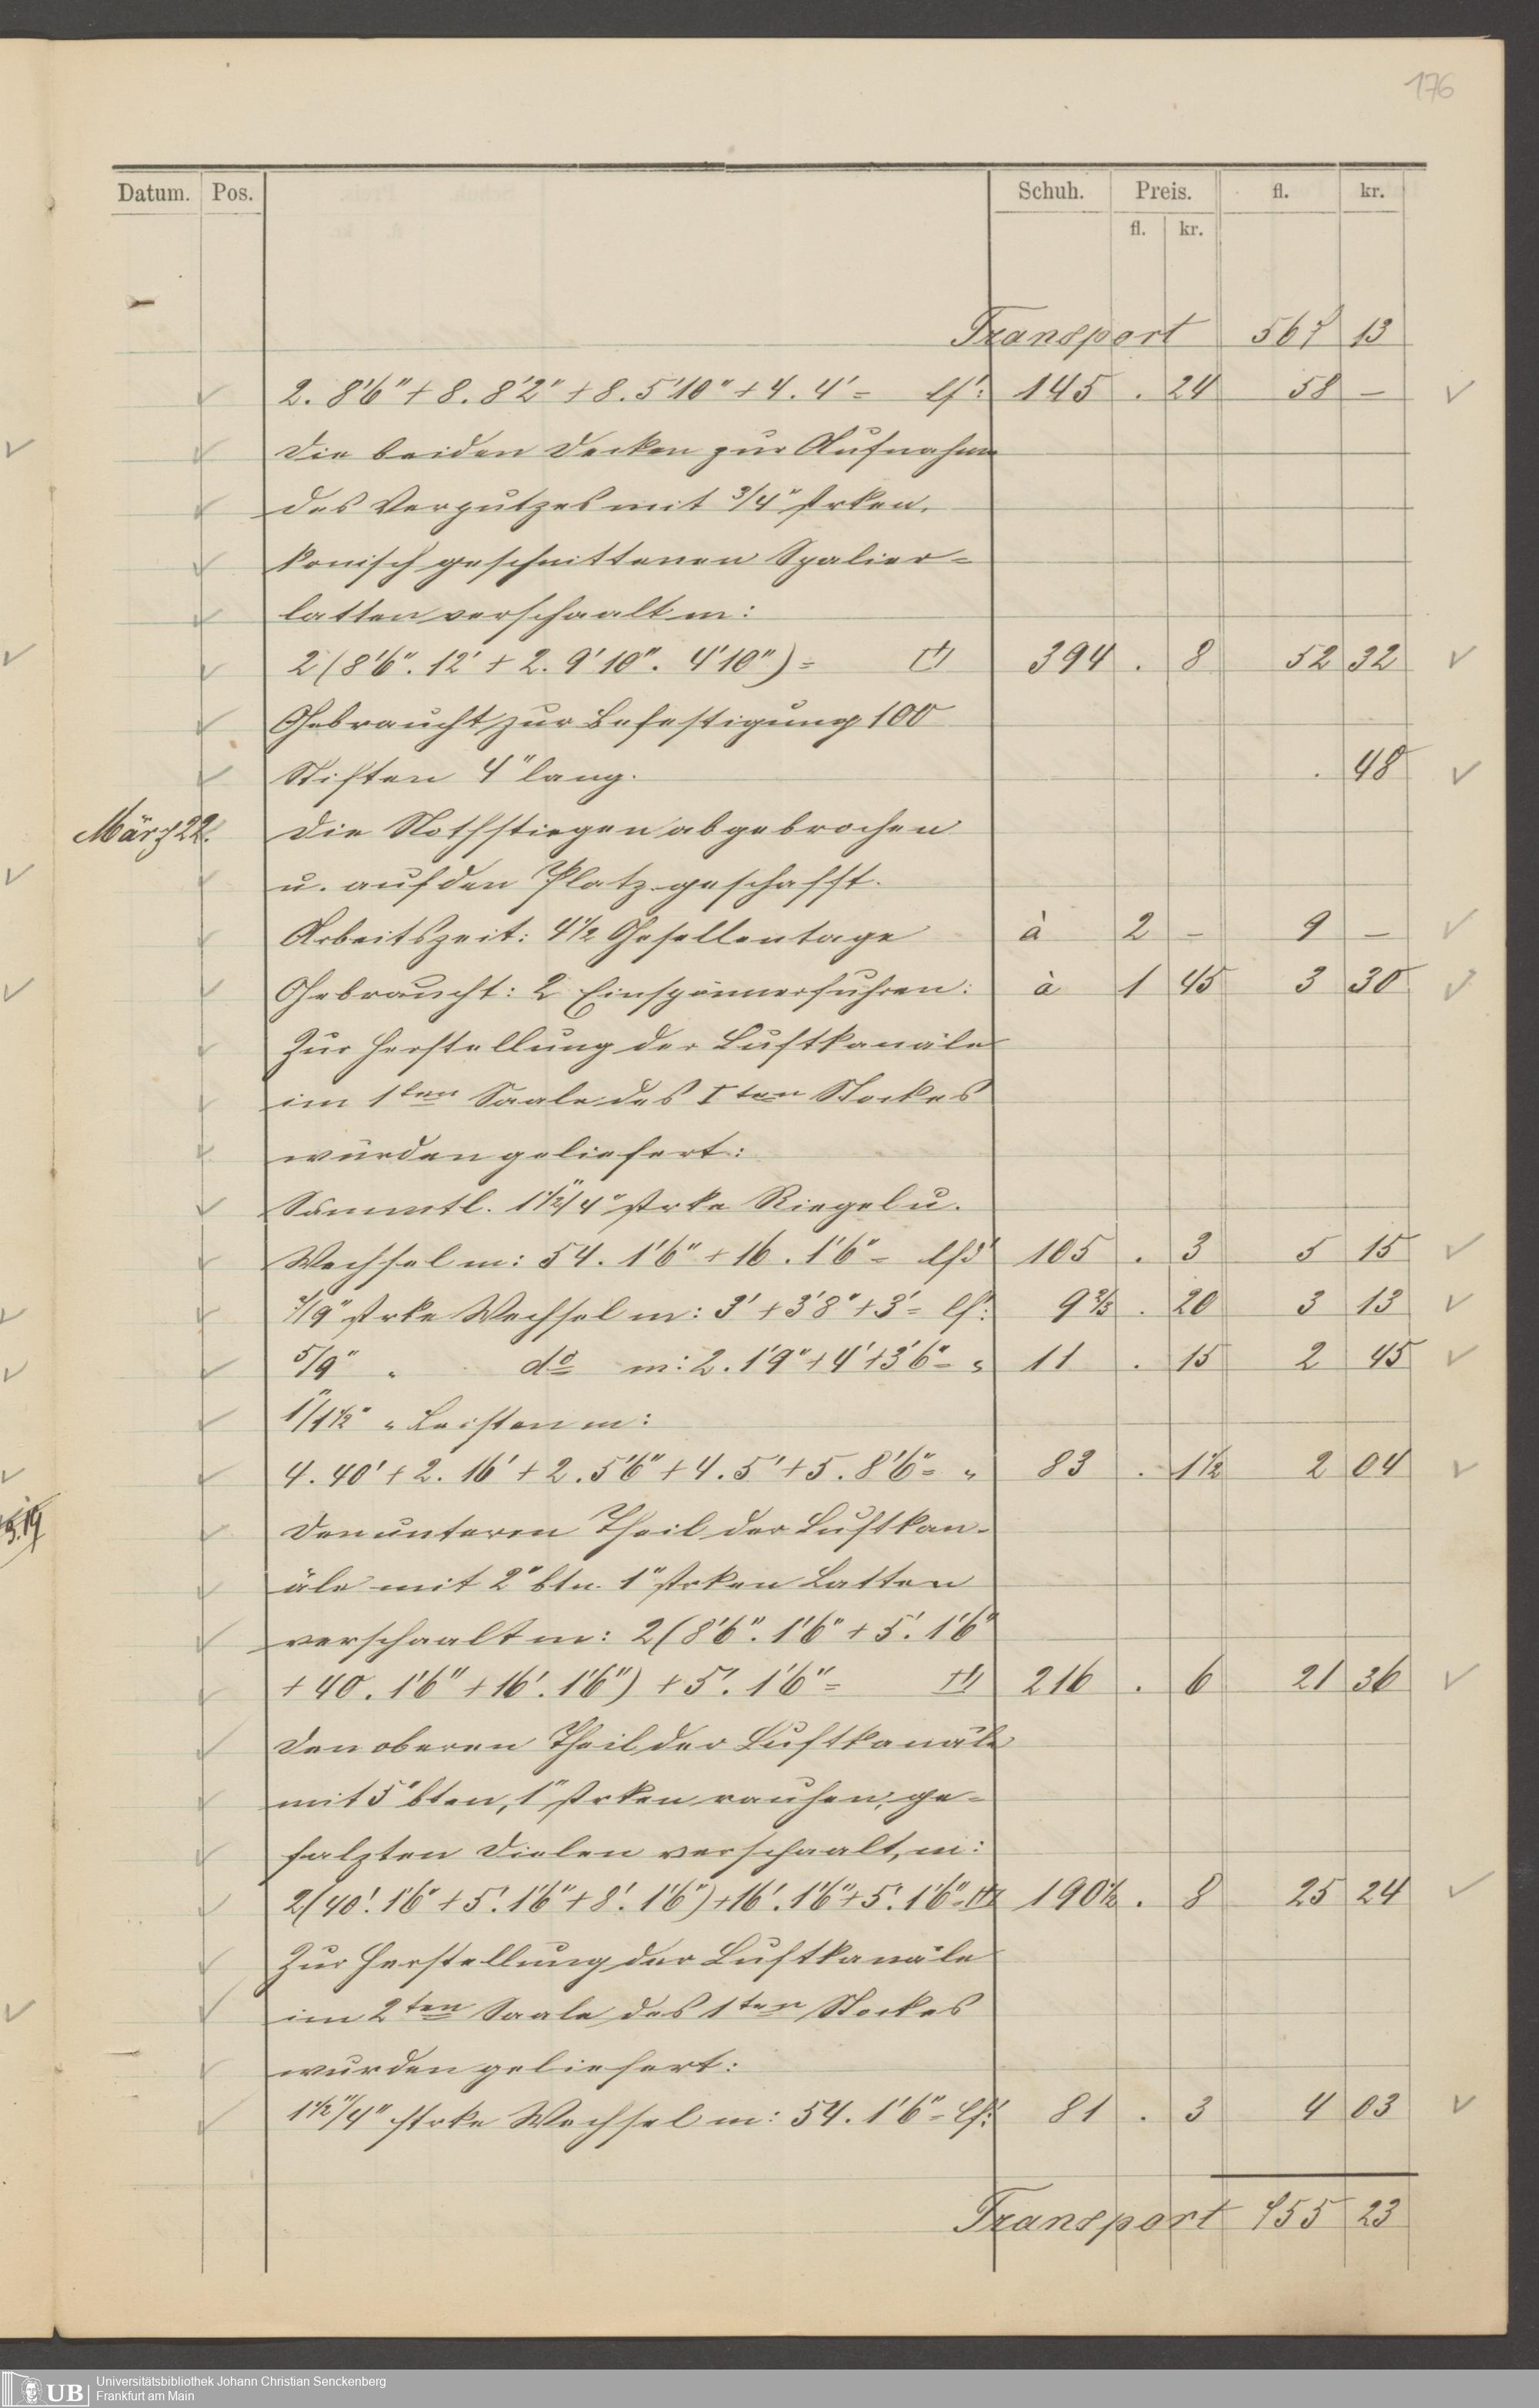 176
Datum. Pos. Schuh. Preis. fl. kr.
fl. kr.
Transport 567 13
2. 8'6" + 8. 8'2" + 8. 5'10" + 4. 4' = lf': 145 . 24 58 –
Die beiden Decken zur Aufnahme
des Verputzes mit 3/4" strken,
konisch geschnittenen Spalier-
latten verschaalt m:
2 (8'6". 12' + 2. 9'10". 4'10") = 394 . 8 52 32
Gebraucht zur Befestigung 100
Stiften 4" lang. . 48
März 22. Die Nothstiegen abgebrochen
u. auf den Platz geschafft.
Arbeitszeit: 4½ Gesellentage à 2 – 9 –
Gebraucht: 2 Einspännerfuhren: à 1 45 3 30
Zur Herstellung der Luftkanäle
im 1ten Saale des Iten Stockes
wurden geliefert:
Sämmtl. 1½"/4" strke Riegel u.
Wechsel m: 54. 1'6" + 16. 1'6" = lfd' 105 . 3 5 15
7/9" strke Wechsel m: 3' + 3'8" + 3' = lf': 9⅔ . 20 3 13
5/9" " do m: 2. 1'9" + 4' + 3'6" = " 11 . 15 2 45
1"/1½" " Leisten m:
4. 40' + 2. 16' + 2. 5'6" + 4. 5' + 5. 8'6" = " 83 . 1½ 2 04
Den unteren Theil der Luftkan-
äle mit 2" btn. 1" strken Latten
verschaalt m: 2 (8'6". 1'6" + 5'. 1'6"
+ 40. 1'6" + 16'. 1'6") + 5'. 1'6" = 216 . 6 21 36
Den oberen Theil der Luftkanäle
mit 5" bten, 1" strken rauhen, ge-
falzten Dielen verschaalt, m:
2 (40'. 1'6" + 5'. 1'6" + 8'. 1'6") + 16'. 1'6" + 5'. 1'6" = 190½ . 8 25 24
Zur Herstellung der Luftkanäle
im 2ten Saale des 1ten Stockes
wurden geliefert:
1½"/4" strke Wechsel m: 54. 1'6" = lf': 81 . 3 4 03
Transport 755 23
UB Universitätsbibliothek Johann Christian Senckenberg
Frankfurt am Main